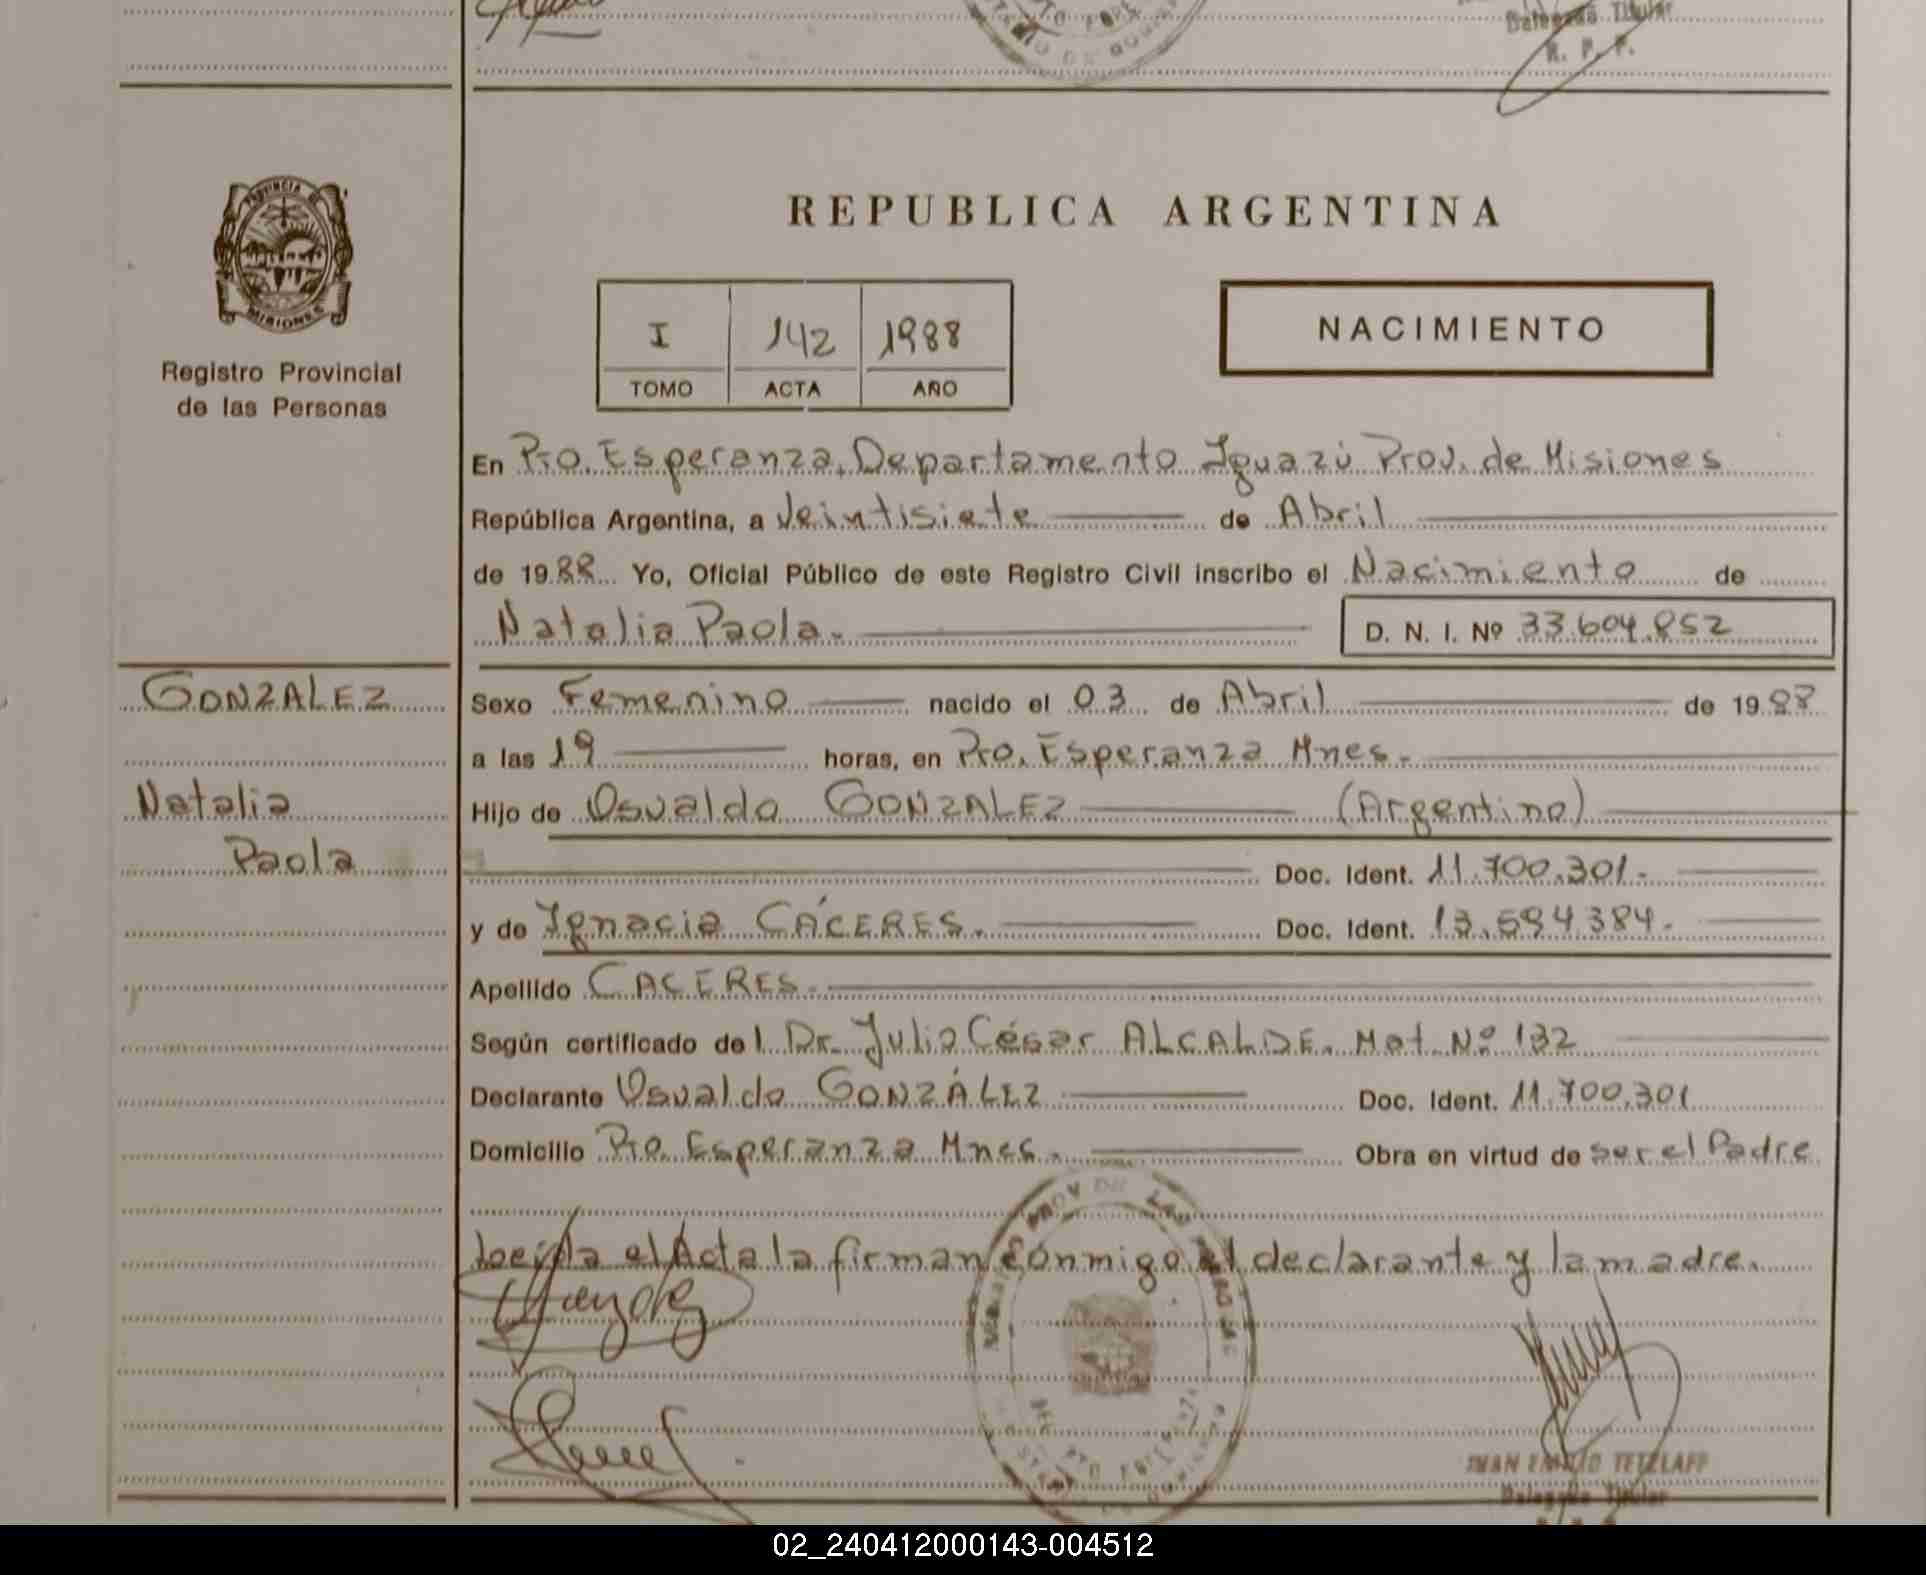 Delegado Titular
R. P. P.
PROVINCIA DE
MISIONES
Registro Provincial
de las Personas
REPUBLICA ARGENTINA
I 142 1988
TOMO ACTA AÑO
NACIMIENTO
En Pto. Esperanza, Departamento Iguazú Prov. de Misiones
República Argentina, a Veintisiete de Abril
de 1988 Yo, Oficial Público de este Registro Civil inscribo el Nacimiento de
Natalia Paola.- D. N. I. Nº 33.604.852
GONZALEZ
Natalia
Paola
Sexo Femenino nacido el 03 de Abril de 1988
a las 19 horas, en Pto. Esperanza Mnes.-
Hijo de Osvaldo GONZALEZ (Argentino)
Doc. Ident. 11.700.301.-
y de Ignacia CÁCERES.- Doc. Ident. 13.594.384.-
Apellido CACERES.-
Según certificado del Dr. Julio César ALCALDE. Mat. Nº 132
Declarante Osvaldo GONZÁLEZ Doc. Ident. 11.700.301
Domicilio Pto. Esperanza Mnes.- Obra en virtud de ser el Padre
Leída el Acta la firman conmigo el declarante y la madre.
TETZLAFF
Delegado Titular
02_240412000143-004512